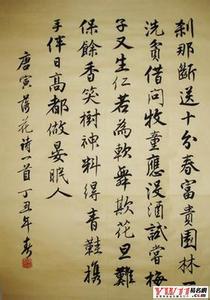 刹那斷送十分春富貴園林
洗貧借問牧童應没酒試嘗梅
子又生仁若為軟舞欺花旦難
保餘香笑樹神料得青鞋携
手伴日高都做晏眠人
唐寅落花詩一首丁丑年春